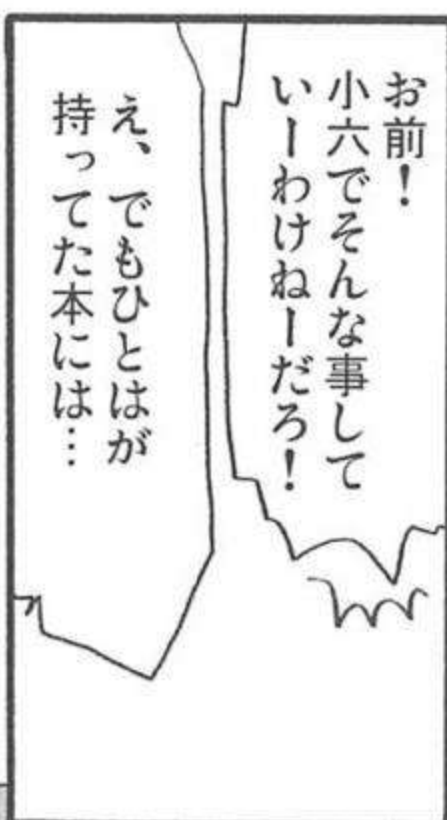 お前！
小六でそんな事して
いーわけねーだろ！
え、でもひとはが
持ってた本には…